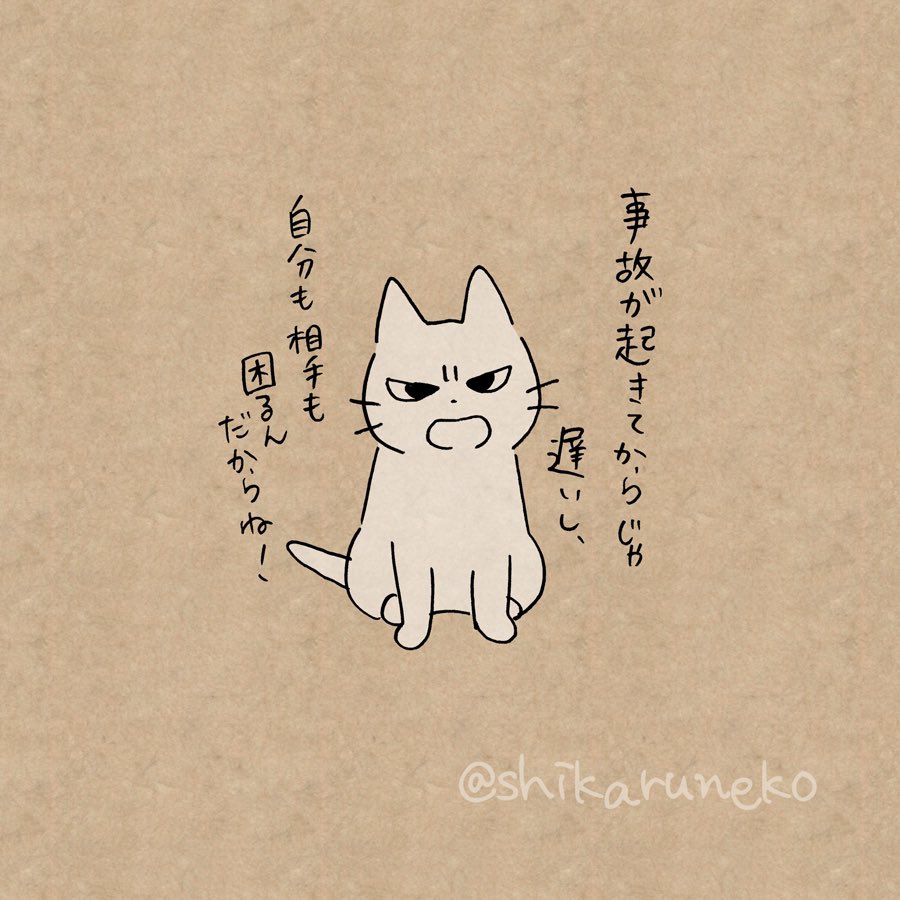 事故が起きてからじゃ
遅いし、
自分も相手も
困るん
だからね！
@shikaruneko